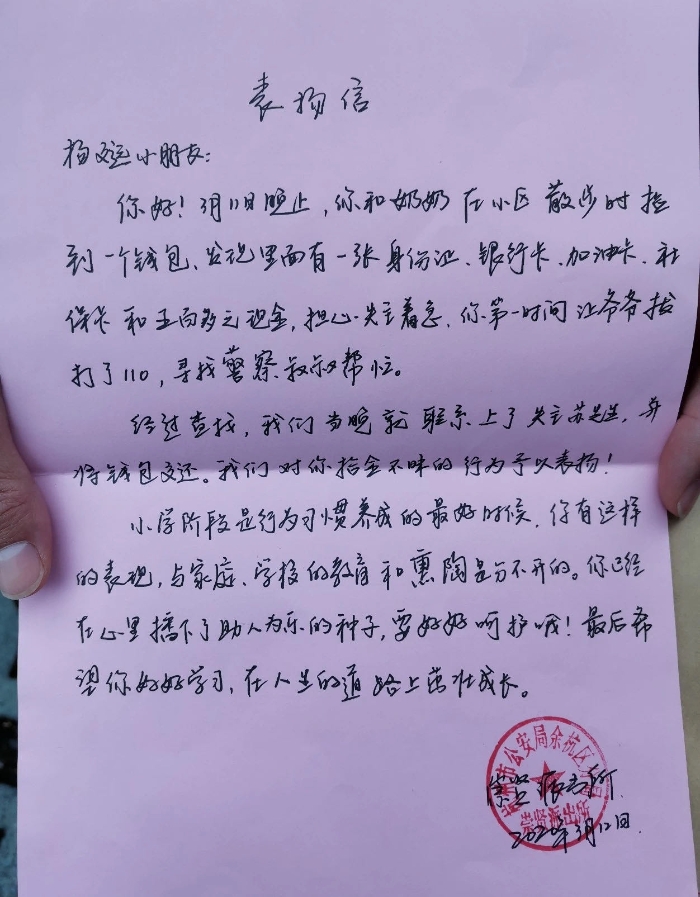 表扬信
杨文运小朋友：
你好！3月11日晚上，你和奶奶在小区散步时捡
到一个钱包、发现里面有一张身份证、银行卡、加油卡、社
保卡和五百多元现金，担心失主着急，你第一时间让爷爷拨
打了110，寻找警察叔叔帮忙。
经过查找，我们当晚就联系上了失主苏先生，并
将钱包交还。我们对你拾金不昧的行为予以表扬！
小学阶段是行为习惯养成的最好时候，你有这样
的表现，与家庭、学校的教育和熏陶是分不开的。你已经
在心里播下了助人为乐的种子，要好好呵护哦！最后希
望你好好学习，在人生的道路上茁壮成长。
崇贤派出所
2020年3月12日
杭州市公安局余杭区分局
崇贤派出所